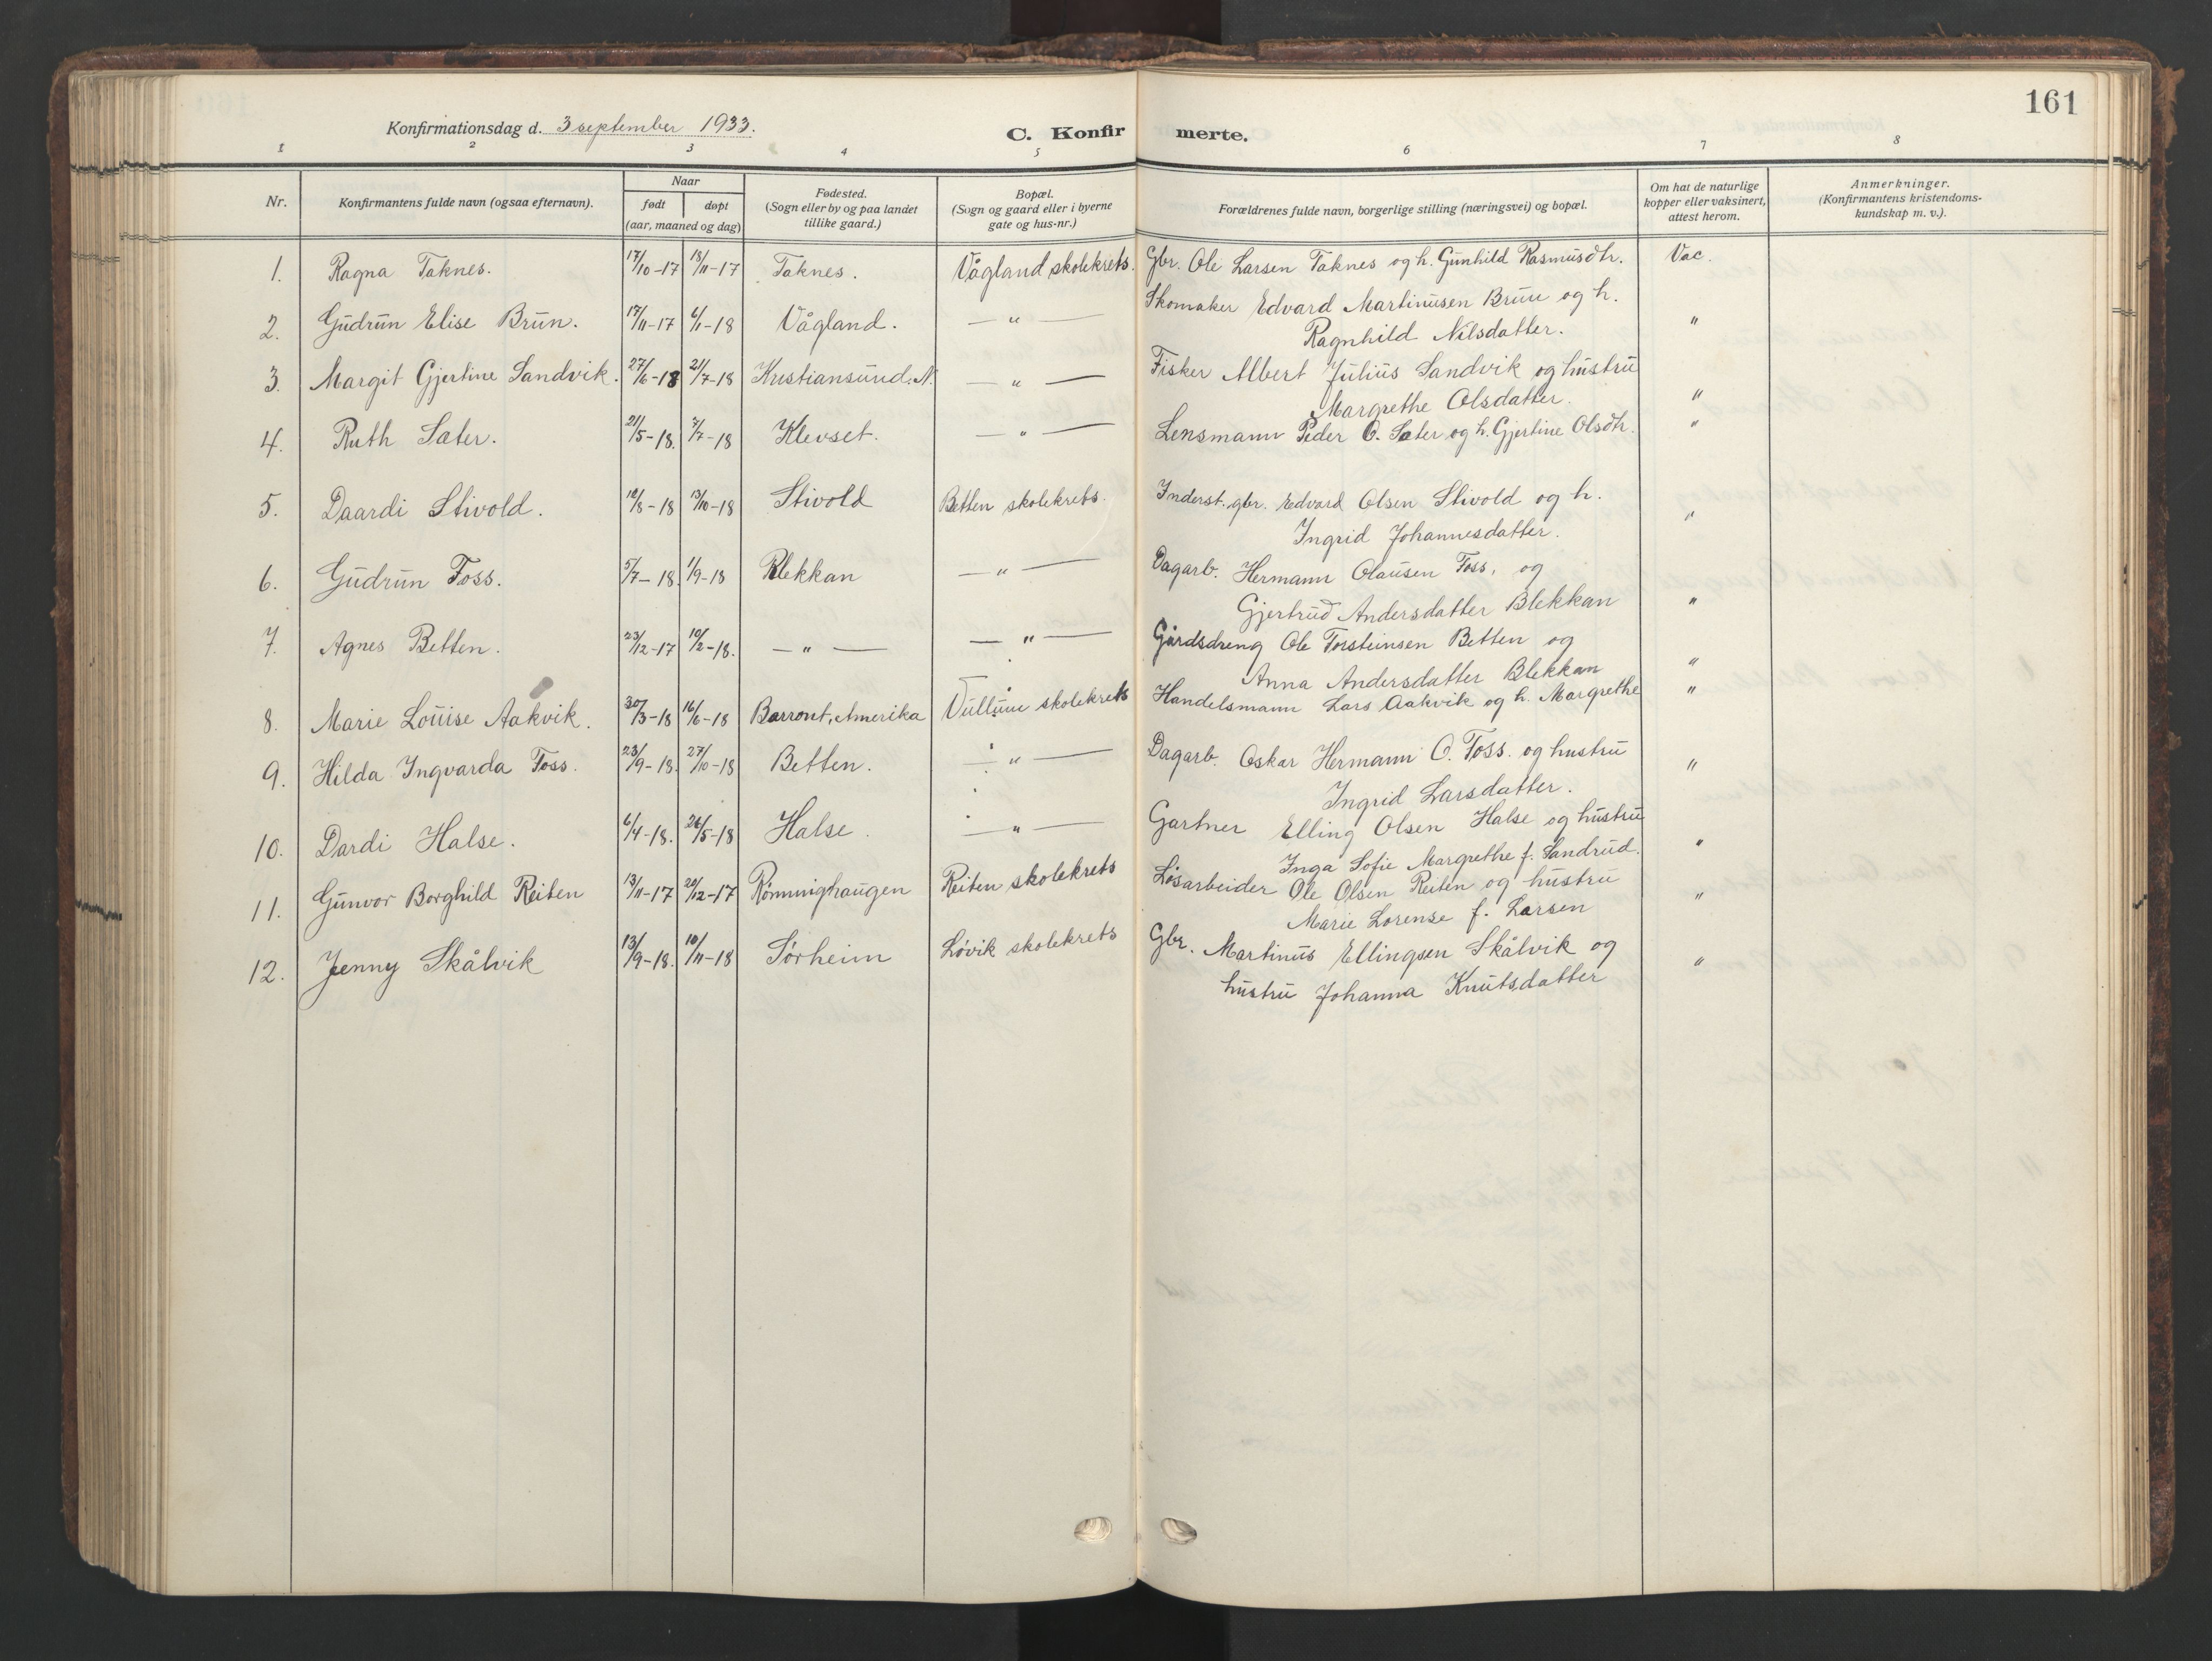 161
Konfirmationsdag d. 3 september 1933.
C. Konfirmerte.
1 2 3 4 5 6 7 8
Nr. | Konfirmantens fulde navn (ogsaa efternavn). | Naar født døpt (aar, maaned og dag) | Fødested. (Sogn eller by og paa landet tillike gaard.) | Bopæl. (Sogn og gaard eller i byerne gate og hus-nr.) | Forældrenes fulde navn, borgerlige stilling (næringsvei) og bopæl. | Om hat de naturlige kopper eller vaksinert, attest herom. | Anmerkninger. (Konfirmantens kristendoms-kundskap m. v.).
1. Ragna Taknes. 17/10-17 18/11-17 Taknes. Vågland skolekrets. Gbr. Ole Larsen Taknes og h. Gunhild Rasmusdtr. Vac.
2. Gudrun Elise Brun. 17/11-17 6/1-18 Vågland. — " — Skomaker Edvard Martinusen Brun og h.
Ragnhild Nilsdatter. "
3. Margit Gjertine Sandvik. 27/6-18 21/7-18 Kristiansund. N. — " — Fisker Albert Julius Sandvik og hustru
Margrethe Olsdatter. "
4. Ruth Sæter. 21/5-18. 7/7-18 Klevset. — " — Lensmann Peder O. Sæter og h. Gjertine Olsdtr. "
5. Daardi Stivold. /8-18 13/10-18 Stivold Betten skolekrets. Inderst. gbr. Edvard Olsen Stivold og h.
Ingrid Johannesdatter. "
6. Gudrun Foss. 5/7-18. 1/9-18 Blekkan — " — Dagarb. Hermann Olausen Foss, og
Gjertrud Andersdatter Blekkan "
7. Agnes Betten. 23/12-17 10/2-18. — " — — " — Gårdsdreng Ole Torsteinsen Betten og
Anna Andersdatter Blekkan "
8. Marie Louise Aakvik. 30/3-18 16/6-18 Barront, Amerika Vullum skolekrets Handelsmann Lars Aakvik og h. Margrethe "
9. Hilda Ingvarda Foss. 23/9-18. 27/10-18 Betten. — " — Dagarb. Oskar Hermann O. Foss. og hustru
Ingrid Larsdatter. "
10. Dardi Halse. 6/4-18. 26/5-18 Halse. — " — Gartner Elling Olsen Halse og hustru
Inga Sofie Margrethe f. Sandrud. "
11. Gunvor Borghild Reiten 13/11-17 20/12-17 Rønninghaugen Reiten skolekrets Løsarbeider Ole Olsen Reiten og hustru
Marie Lorense f. Larsen "
12. Jenny Skålvik 13/9-18. 10/11-18 Sørheim Løvik skolekrets Gbr. Martinus Ellingsen Skålvik og
hustru Johanna Knutsdatter "